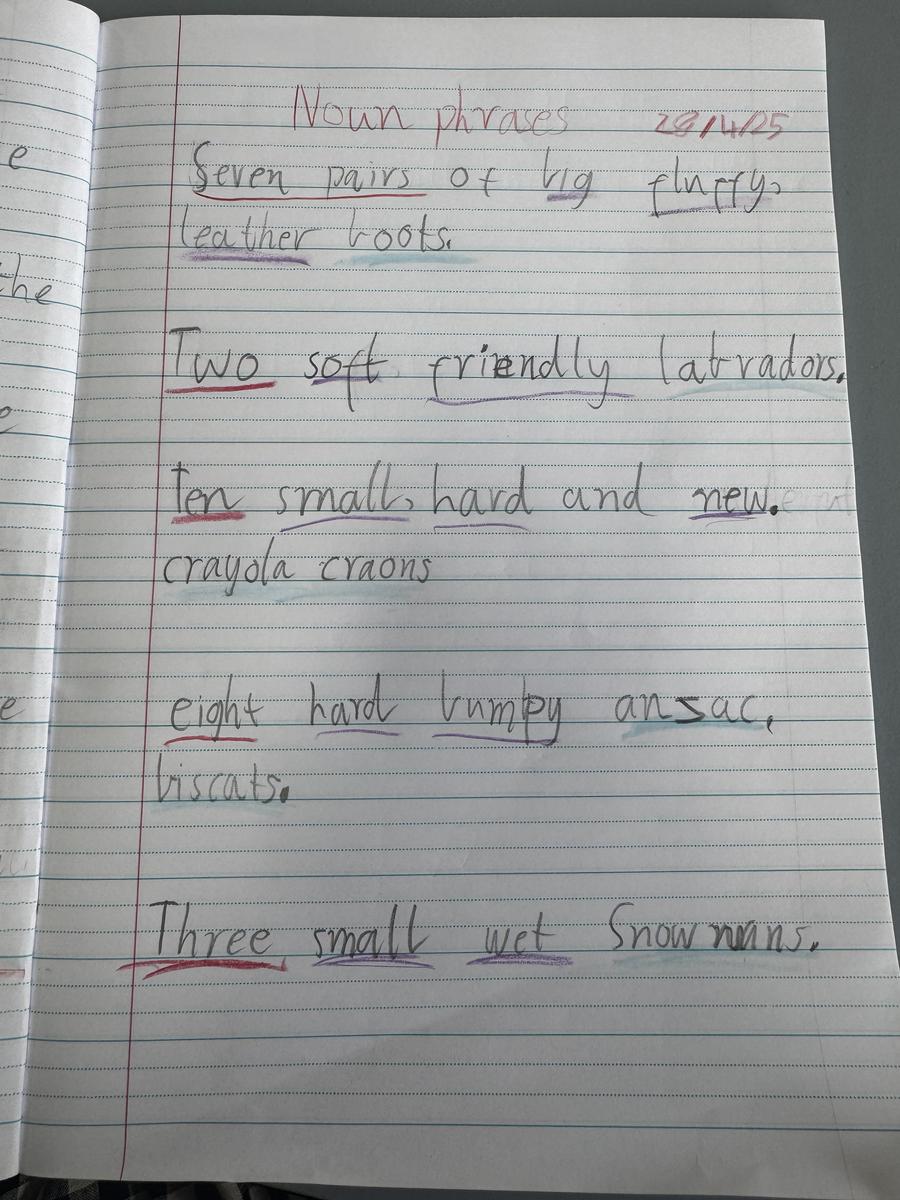 Noun phrases 28/4/25
Seven pairs of big fluffy,
leather boots.
Two soft friendly labradors.
Ten small, hard and new.
crayola craons
eight hard bumpy ansac,
biscats.
Three small wet Snowmans.
e
the
e